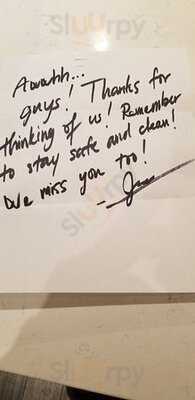 Slurrpy
Awwhh...
guys! Thanks for
thinking of us! Remember
to stay safe and clean!
We miss you too!
Slurrpy